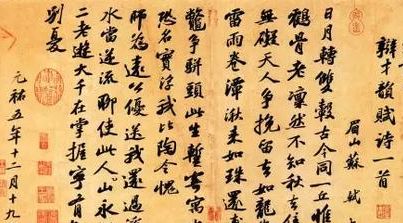 辯才韻賦詩一首
眉山蘇軾
日月轉雙轂古今同一丘惟
鶴骨老凜然不知秋去
無礙天人争挽留去如龍
雷雨卷潭湫来如珠還
鼈争駢頭此生暫寄寓
恐名實浮我比陶令愧
師為遠公優送我還過
水當逆流聊使此山人永
二老遊大千在掌握寧有
別憂
元祐五年十二月十九